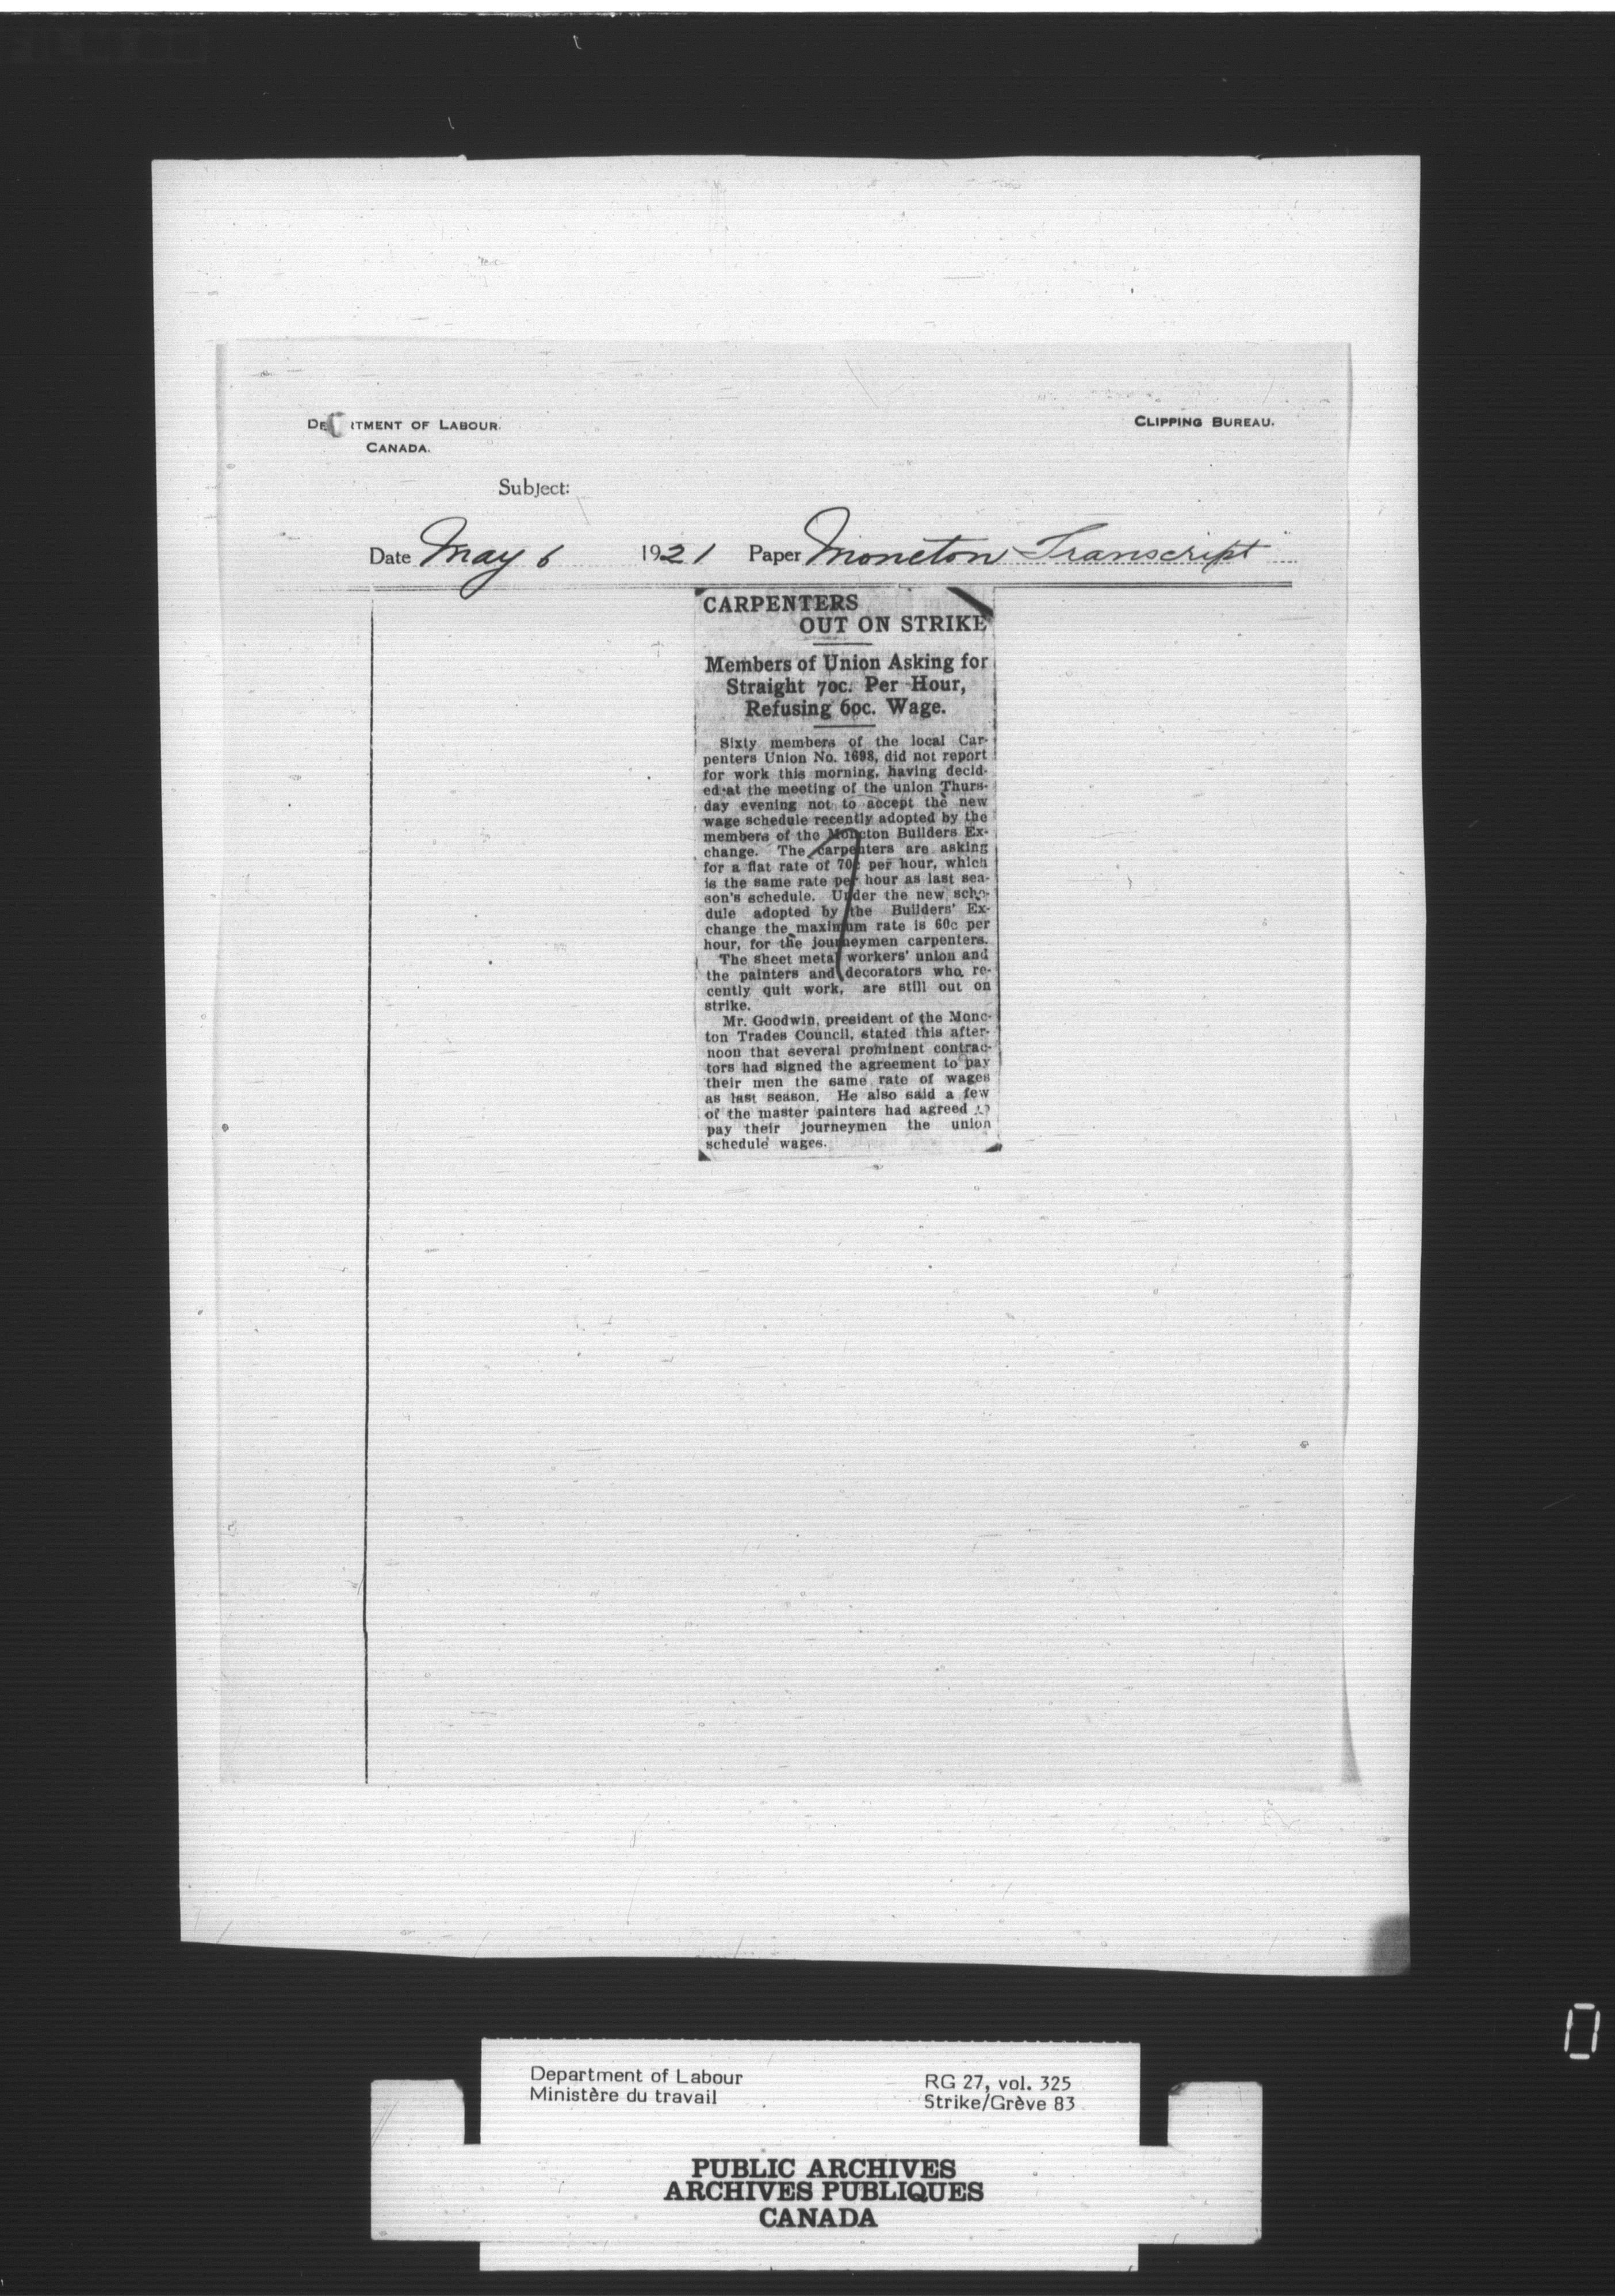 DE RTMENT OF LABOUR.
CANADA.
CLIPPING BUREAU.
Subject:
Date May 6 1921 Paper Moncton Transcript
CARPENTERS
OUT ON STRIKE
Members of Union Asking for
Straight 70c. Per Hour,
Refusing 60c. Wage.
Sixty members of the local Car-
penters Union No. 1698, did not report
for work this morning, having decid-
ed at the meeting of the union Thurs-
day evening not to accept the new
wage schedule recently adopted by the
members of the Moncton Builders Ex-
change. The carpenters are asking
for a flat rate of 70c per hour, which
is the same rate per hour as last sea-
son's schedule. Under the new sche-
dule adopted by the Builders' Ex-
change the maximum rate is 60c per
hour, for the journeymen carpenters.
The sheet metal workers' union and
the painters and decorators who re-
cently quit work, are still out on
strike.
Mr. Goodwin, president of the Monc-
ton Trades Council, stated this after-
noon that several prominent contrac-
tors had signed the agreement to pay
their men the same rate of wages
as last season. He also said a few
of the master painters had agreed to
pay their journeymen the union
schedule wages.
Department of Labour
Ministère du travail
RG 27, vol. 325
Strike/Grève 83
PUBLIC ARCHIVES
ARCHIVES PUBLIQUES
CANADA